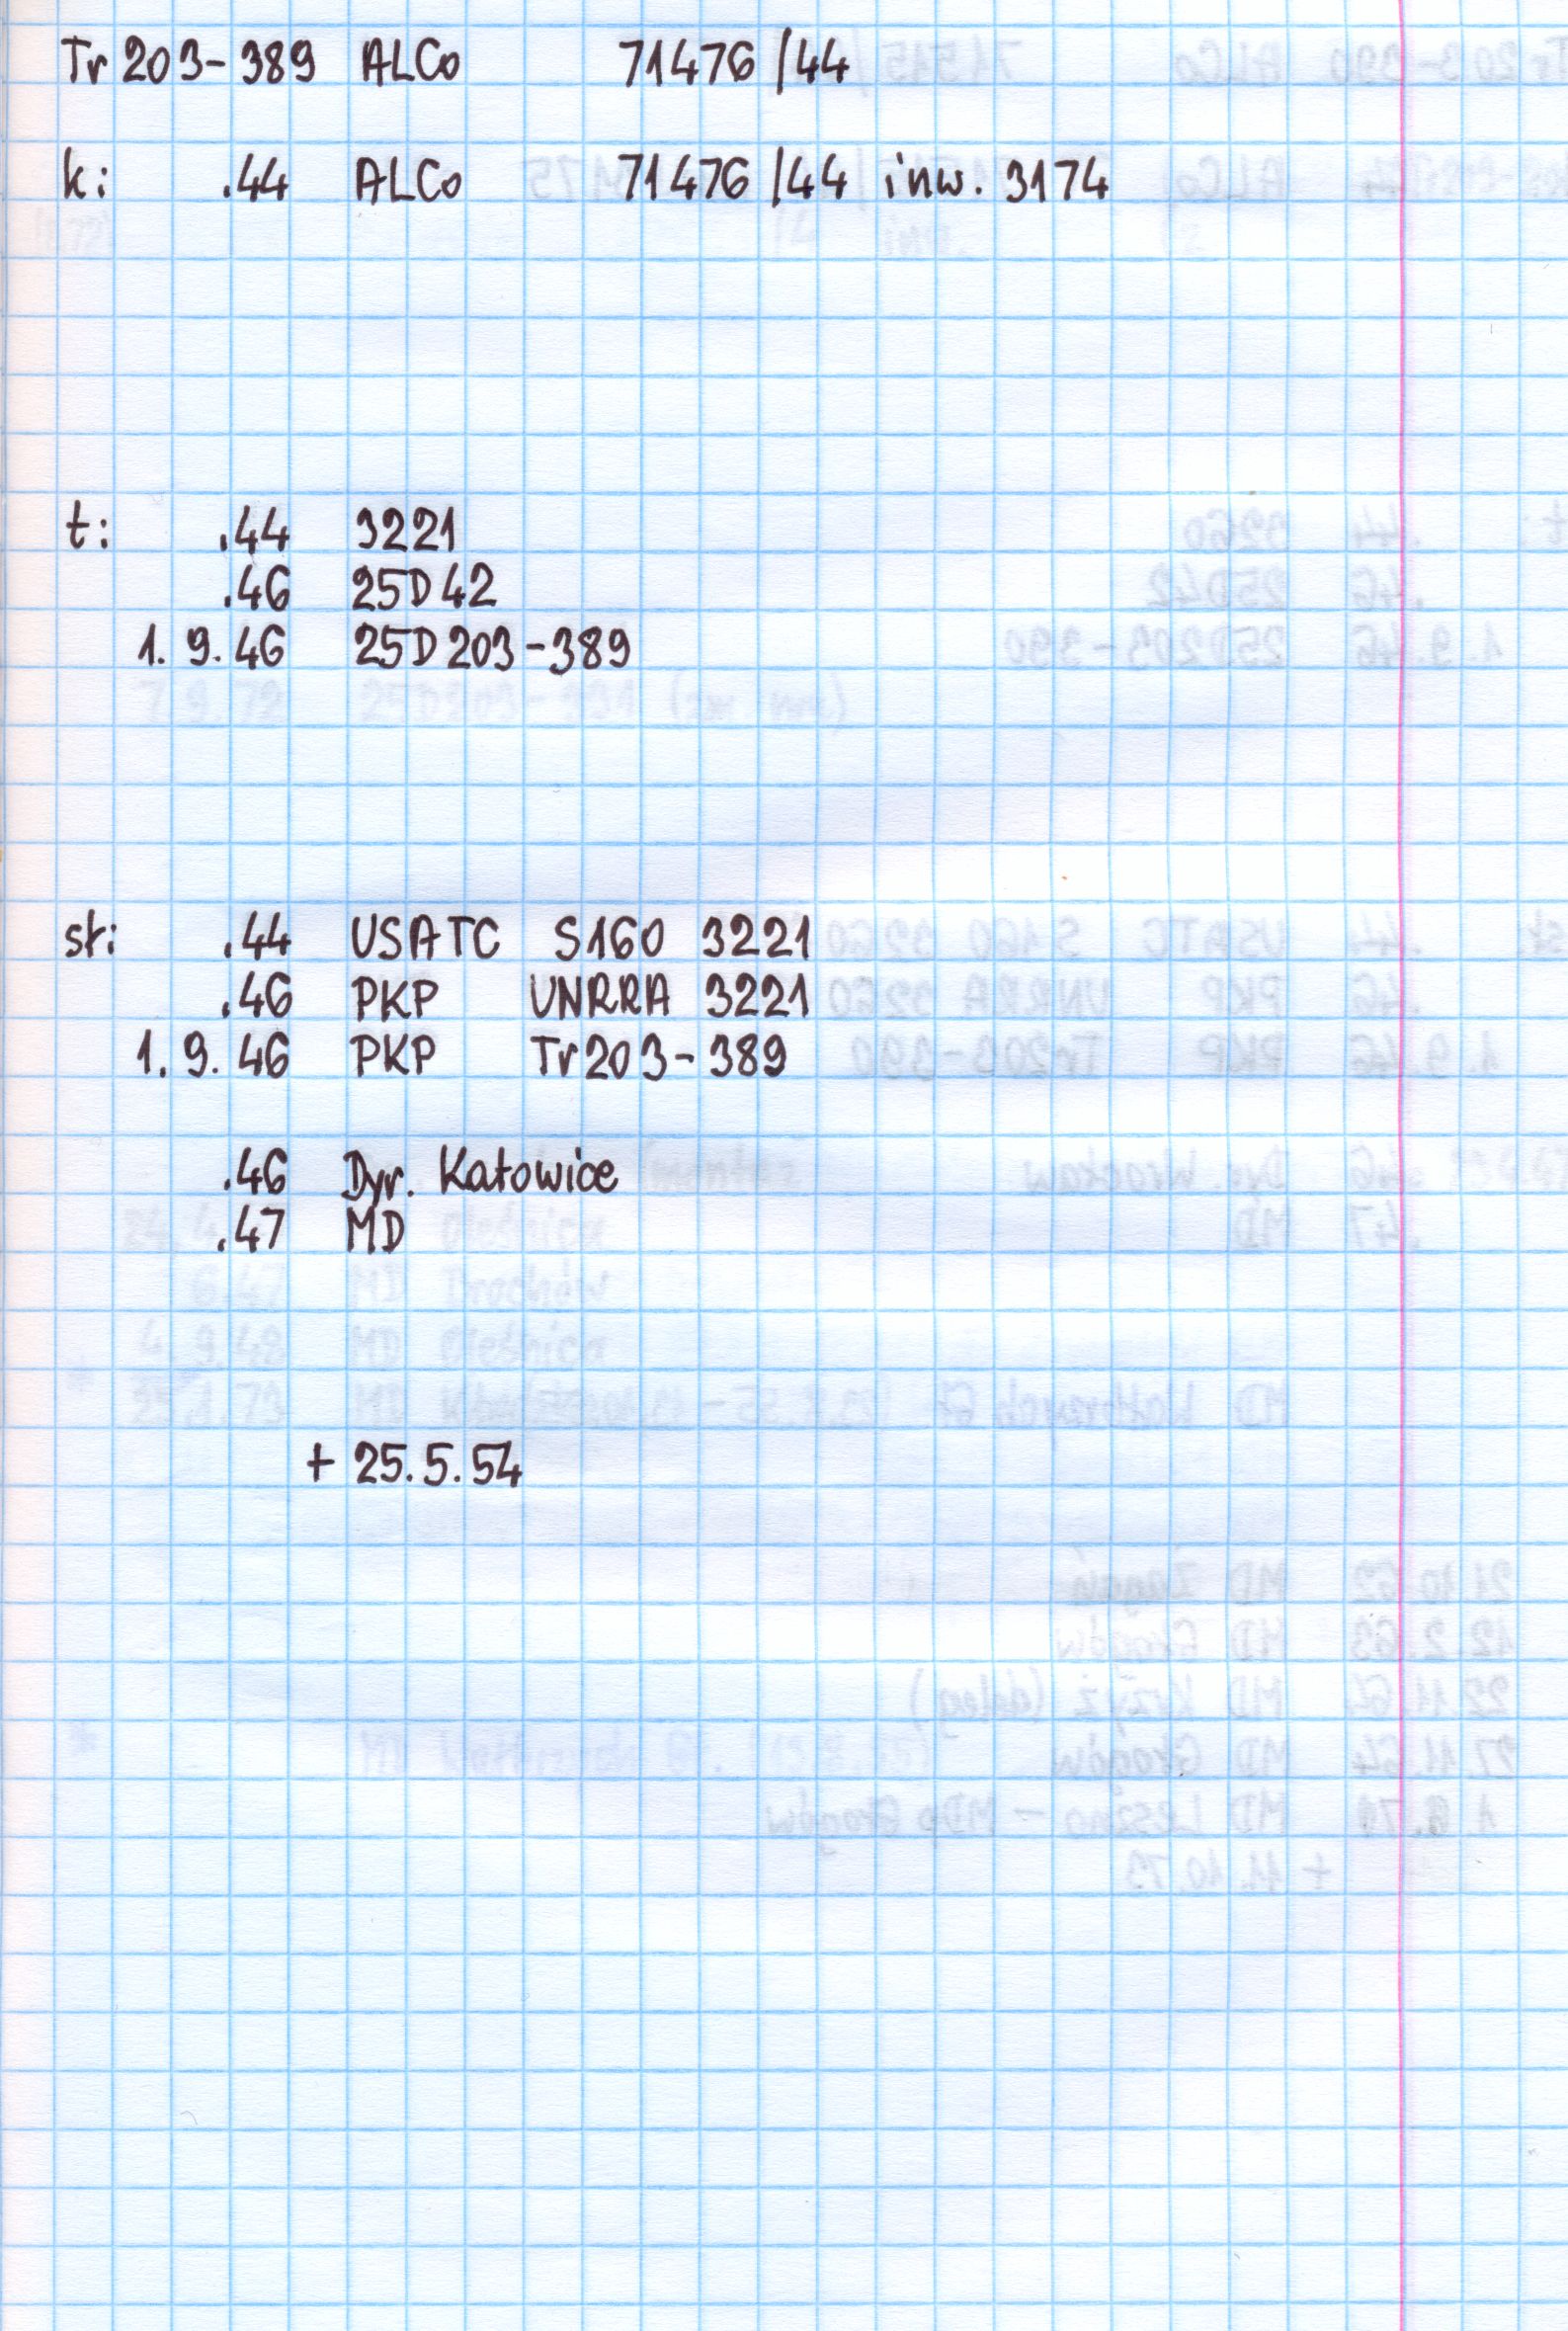 Tr 203-389 ALCo 71476 /44
k: .44 ALCo 71476 /44 inw. 3174
t: .44 3221
.46 25D42
1. 9. 46 25D203-389
st: .44 USATC S160 3221
.46 PKP UNRRA 3221
1. 9. 46 PKP Tr203-389
.46 Dyr. Katowice
.47 MD
+ 25.5.54